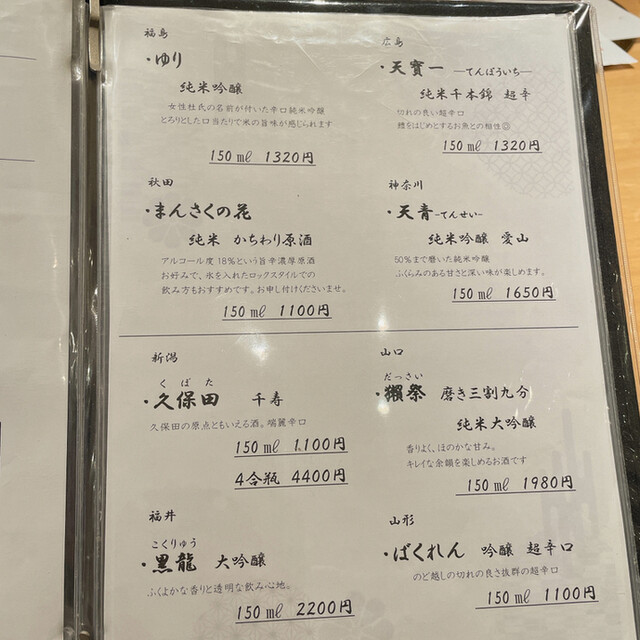 福島
・ゆり
純米吟醸
女性杜氏の名前が付いた辛口純米吟醸
とろりとした口当たりで米の旨味が感じられます
150㎖ 1320円
秋田
・まんさくの花
純米 かちわり原酒
アルコール度18%という旨辛濃厚原酒
お好みで、氷を入れたロックスタイルでの
飲み方もおすすめです。お申し付けくださいませ。
150㎖ 1100円
新潟
くぼた
・久保田 千寿
久保田の原点ともいえる酒。端麗辛口
150㎖ 1,100円
4合瓶 4400円
福井
こくりゅう
・黒龍 大吟醸
ふくよかな香りと透明な飲み心地。
150㎖ 2200円
広島
・天寶一 ―てんぽういち―
純米千本錦 超辛
切れの良い超辛口
鱧をはじめとするお魚との相性◎
150㎖ 1320円
神奈川
・天青-てんせい-
純米吟醸 愛山
50%まで磨いた純米吟醸
ふくらみのある甘さと深い味が楽しめます。
150㎖ 1650円
山口
だっさい
・獺祭 磨き三割九分
純米大吟醸
香りよく、ほのかな甘み。
キレイな余韻を楽しめるお酒です
150㎖ 1980円
山形
・ばくれん 吟醸 超辛口
のど越しの切れの良さ抜群の超辛口
150㎖ 1100円